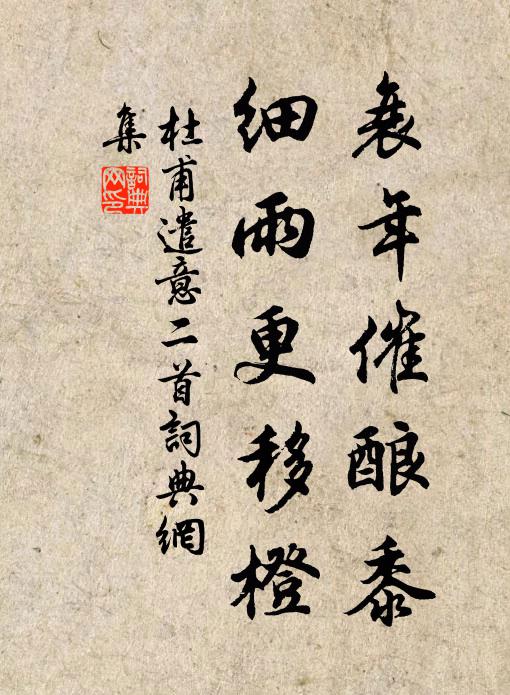 衰年催酿黍
細雨更移橙
杜甫遣意二首詞典網
集
詞典
网印